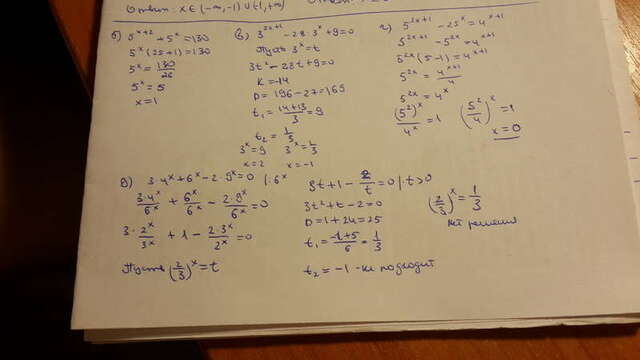 x ∈ (-∞; -1) ∪ (1; +∞)
б) 5^{x+2} + 5^x = 130
5^x (25+1) = 130
5^x = 130/26
5^x = 5
x = 1
в) 3^{2x+1} - 28·3^x + 9 = 0
Пусть 3^x = t
3t² - 28t + 9 = 0
k = -14
D = 196 - 27 = 169
t₁ = (14+13)/3 = 9
t₂ = 1/3
3^x = 9 3^x = 1/3
x = 2 x = -1
г) 5^{2x+1} - 25^x = 4^{x+1}
5^{2x+1} - 5^{2x} = 4^{x+1}
5^{2x} (5-1) = 4^{x+1}
5^{2x} = 4^{x+1}/4
5^{2x} = 4^x
(5²)^x/4^x = 1 (5²/4)^x = 1
x = 0
д) 3·4^x + 6^x - 2·9^x = 0 | : 6^x
3·4^x/6^x + 6^x/6^x - 2·9^x/6^x = 0
3·2^x/3^x + 1 - 2·3^x/2^x = 0
Пусть (2/3)^x = t
3t + 1 - 2/t = 0 | t > 0
3t² + t - 2 = 0
D = 1 + 24 = 25
t₁ = (-1+5)/6 = 1/3
t₂ = -1 - не подходит
(2/3)^x = 1/3
нет решения